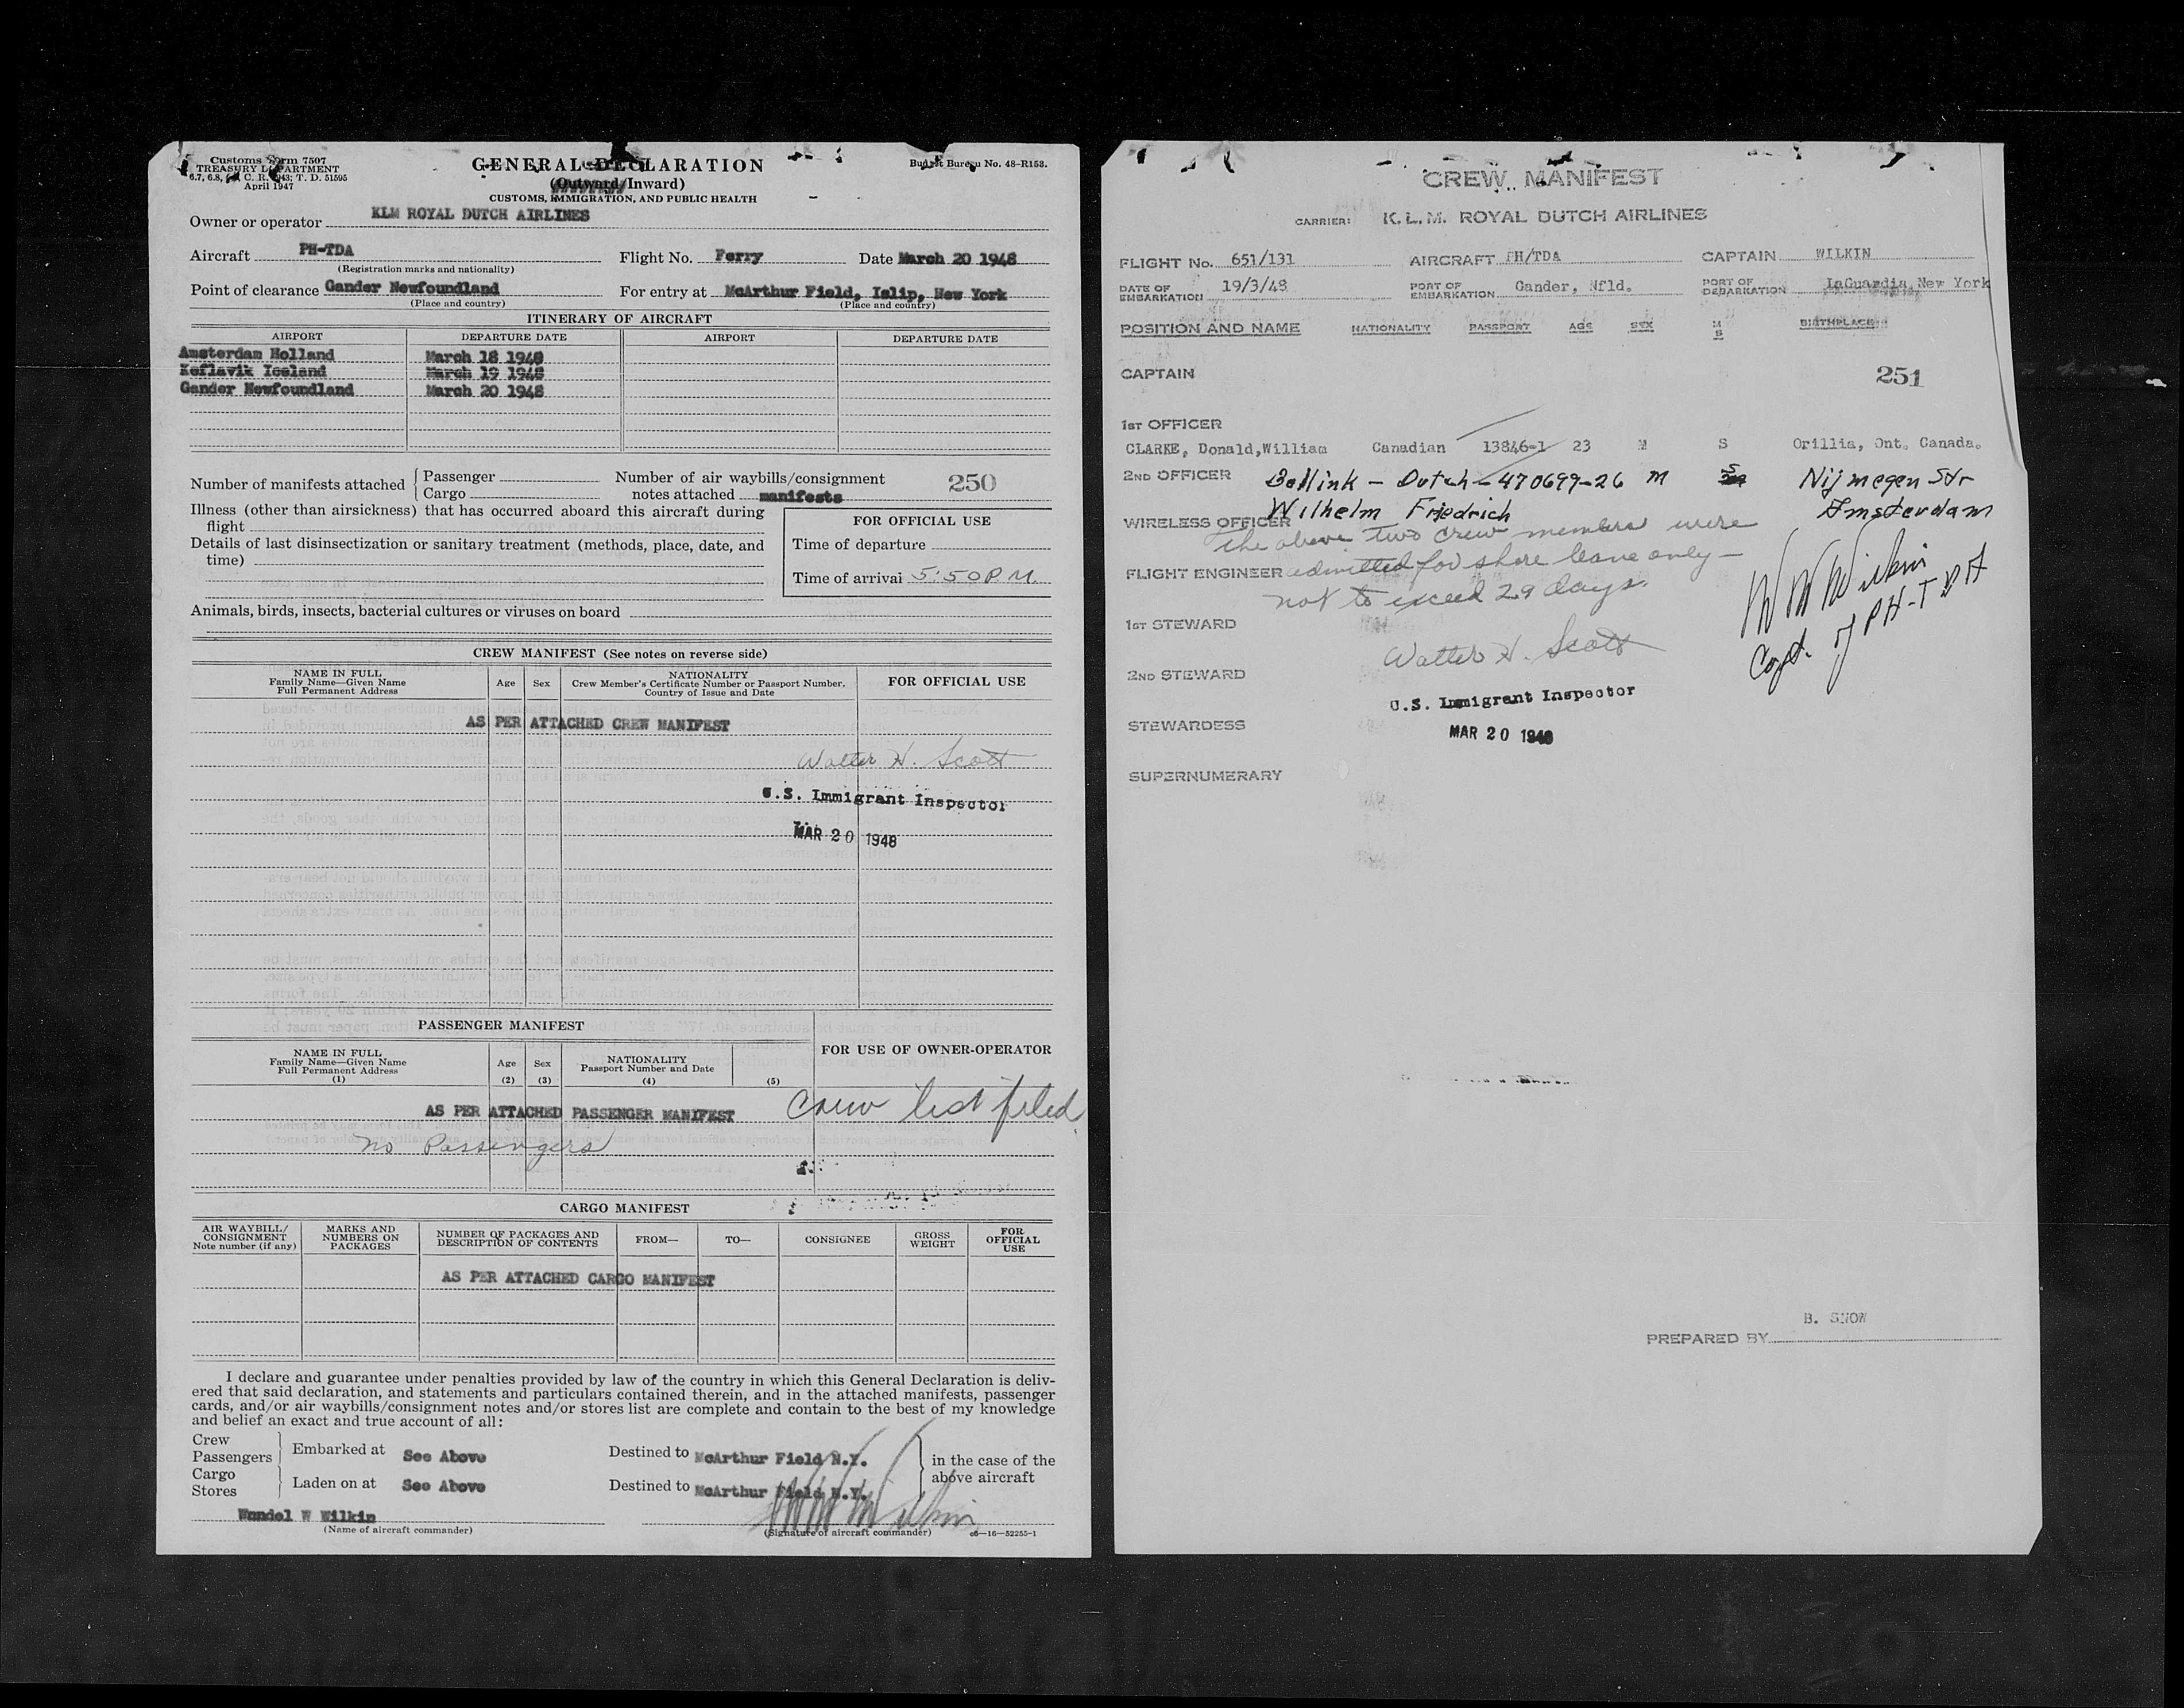 Customs Form 7507
TREASURY DEPARTMENT
6.7, 6.8, C. R. 1943; T. D. 51595
April 1947
GENERAL DECLARATION
(Outward/Inward)
CUSTOMS, IMMIGRATION, AND PUBLIC HEALTH
Budget Bureau No. 48-R153.
Owner or operator KLM ROYAL DUTCH AIRLINES
Aircraft PH-TDA Flight No. Ferry Date March 20 1948
(Registration marks and nationality)
Point of clearance Gander Newfoundland For entry at McArthur Field, Islip, New York
(Place and country) (Place and country)
ITINERARY OF AIRCRAFT
AIRPORT DEPARTURE DATE AIRPORT DEPARTURE DATE
Amsterdam Holland March 18 1948
Keflavik Iceland March 19 1948
Gander Newfoundland March 20 1948
Number of manifests attached { Passenger
Cargo
Number of air waybills/consignment
notes attached manifests
250
Illness (other than airsickness) that has occurred aboard this aircraft during
flight
Details of last disinsectization or sanitary treatment (methods, place, date, and
time)
FOR OFFICIAL USE
Time of departure
Time of arrival 5:50 P.M.
Animals, birds, insects, bacterial cultures or viruses on board
CREW MANIFEST (See notes on reverse side)
NAME IN FULL
Family Name—Given Name
Full Permanent Address
Age Sex
NATIONALITY
Crew Member's Certificate Number or Passport Number,
Country of Issue and Date
FOR OFFICIAL USE
AS PER ATTACHED CREW MANIFEST
Walter H. Scott
U.S. Immigrant Inspector
MAR 20 1948
PASSENGER MANIFEST
NAME IN FULL
Family Name—Given Name
Full Permanent Address
(1)
Age
(2)
Sex
(3)
NATIONALITY
Passport Number and Date
(4)
(5)
FOR USE OF OWNER-OPERATOR
AS PER ATTACHED PASSENGER MANIFEST
Crew list filed
No Passengers
CARGO MANIFEST
AIR WAYBILL/
CONSIGNMENT
Note number (if any)
MARKS AND
NUMBERS ON
PACKAGES
NUMBER OF PACKAGES AND
DESCRIPTION OF CONTENTS
FROM—
TO—
CONSIGNEE
GROSS
WEIGHT
FOR
OFFICIAL
USE
AS PER ATTACHED CARGO MANIFEST
I declare and guarantee under penalties provided by law of the country in which this General Declaration is deliv-
ered that said declaration, and statements and particulars contained therein, and in the attached manifests, passenger
cards, and/or air waybills/consignment notes and/or stores list are complete and contain to the best of my knowledge
and belief an exact and true account of all:
Crew
Passengers
Embarked at See Above Destined to McArthur Field N.Y.
Cargo
Stores
Laden on at See Above Destined to McArthur Field N.Y.
in the case of the
above aircraft
Wendel W Wilkin
(Name of aircraft commander)
W W Wilkin
(Signature of aircraft commander)
c6—16—52255-1
CREW MANIFEST
CARRIER: K.L.M. ROYAL DUTCH AIRLINES
FLIGHT No. 651/131 AIRCRAFT PH/TDA CAPTAIN WILKIN
DATE OF EMBARKATION 19/3/48 PORT OF EMBARKATION Gander, Nfld. PORT OF DEBARKATION LaGuardia, New York
POSITION AND NAME NATIONALITY PASSPORT AGE SEX M S BIRTHPLACE
CAPTAIN
251
1ST OFFICER
CLARKE, Donald,William Canadian 13846-1 23 M S Orillia, Ont. Canada.
2ND OFFICER Bellink - Dutch - 470699-26 M S Nijmegen Str
Wilhelm Friedrich Amsterdam
WIRELESS OFFICER
The above two crew members were
FLIGHT ENGINEER admitted for shore leave only -
not to exceed 29 days.
W W Wilkin
Capt. of PH-TDA
1ST STEWARD
Walter H. Scott
2ND STEWARD
U.S. Immigrant Inspector
STEWARDESS
MAR 20 1948
SUPERNUMERARY
B. SNOW
PREPARED BY